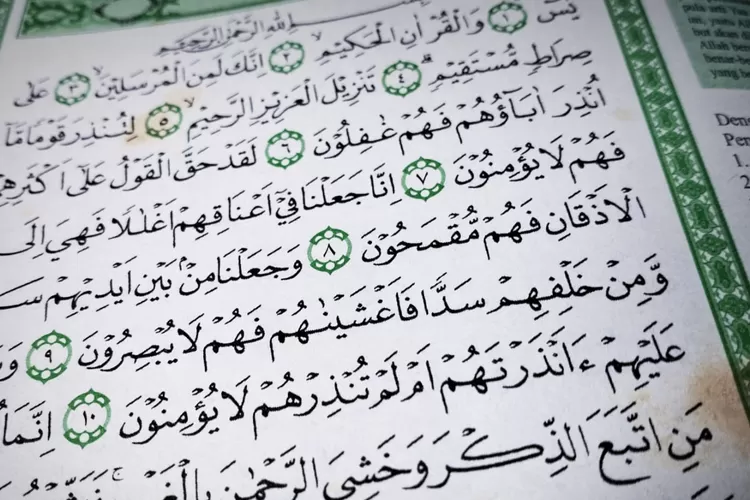 بِسْمِ اللّٰهِ الرَّحْمٰنِ الرَّحِيْمِ
يٰسۤ ﴿١﴾ وَالْقُرْاٰنِ الْحَكِيْمِۙ ﴿٢﴾ اِنَّكَ لَمِنَ الْمُرْسَلِيْنَۙ ﴿٣﴾ عَلٰى
صِرَاطٍ مُّسْتَقِيْمٍۗ ﴿٤﴾ تَنْزِيْلَ الْعَزِيْزِ الرَّحِيْمِۙ ﴿٥﴾ لِتُنْذِرَ قَوْمًا مَّآ
اُنْذِرَ اٰبَاۤؤُهُمْ فَهُمْ غٰفِلُوْنَ ﴿٦﴾ لَقَدْ حَقَّ الْقَوْلُ عَلٰٓى اَكْثَرِهِمْ
فَهُمْ لَا يُؤْمِنُوْنَ ﴿٧﴾ اِنَّا جَعَلْنَا فِيْٓ اَعْنَاقِهِمْ اَغْلٰلًا فَهِيَ اِلَى
الْاَذْقَانِ فَهُمْ مُّقْمَحُوْنَ ﴿٨﴾ وَجَعَلْنَا مِنْۢ بَيْنِ اَيْدِيْهِمْ
وَّمِنْ خَلْفِهِمْ سَدًّا فَاَغْشَيْنٰهُمْ فَهُمْ لَا يُبْصِرُوْنَ ﴿٩﴾
عَلَيْهِمْ ءَاَنْذَرْتَهُمْ اَمْ لَمْ تُنْذِرْهُمْ لَا يُؤْمِنُوْنَ ﴿١٠﴾ اِنَّمَا
مَنِ اتَّبَعَ الذِّكْرَ وَخَشِيَ الرَّحْمٰنَ بِالْغَيْبِۚ